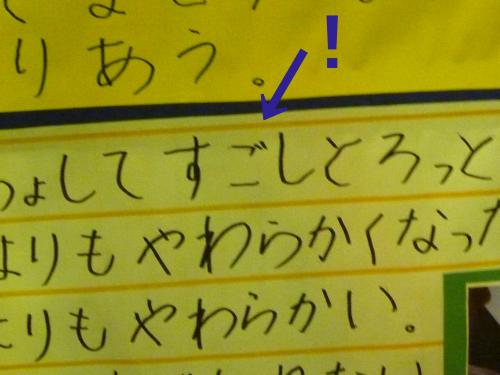 りあう。
!
ょしてすごしとろっと
よりもやわらかくなった
よりもやわらかい。